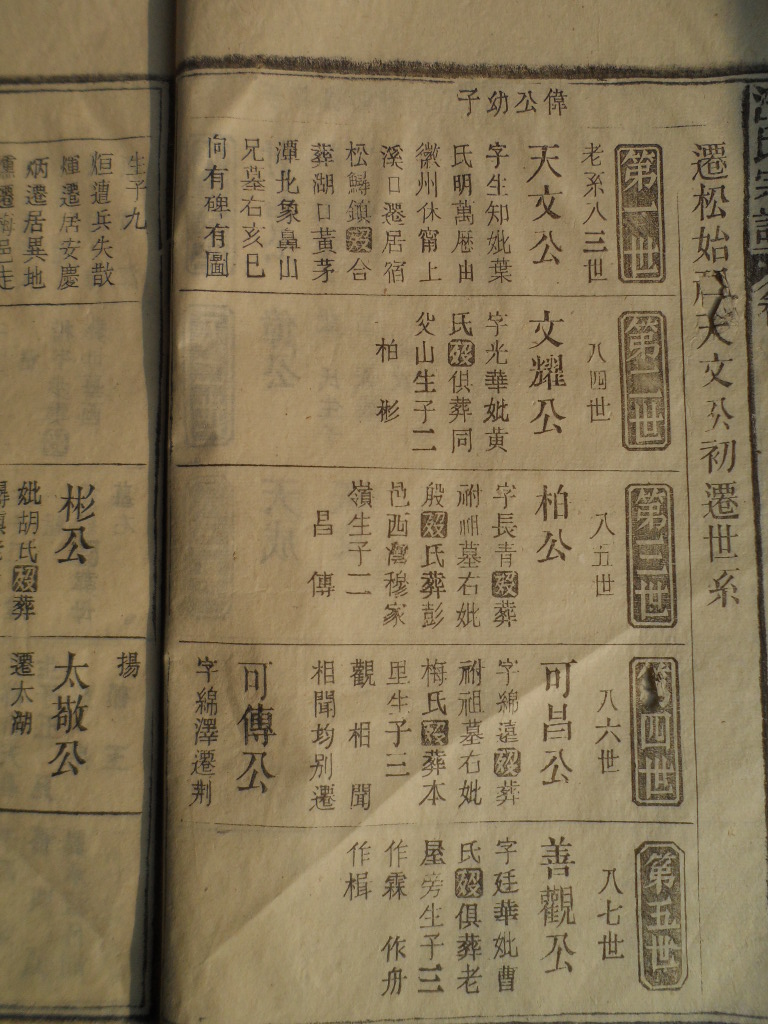 汪氏宗譜
遷松始祖天文公初遷世系
第一世
老系八三世
偉公幼子
天文公
字生知妣葉
氏明萬厯由
徽州休甯上
溪口遷居宿
松鱘鎮歿合
葬湖口黃茅
潭北象鼻山
兄墓右亥巳
向有碑有圖
第二世
八四世
文耀公
字光華妣黃
氏歿俱葬同
父山生子二
柏 彬
第三世
八五世
柏公
字長青歿葬
祔祖墓右妣
殷歿氏葬彭
邑西灣穆家
嶺生子二
昌 傳
第四世
八六世
可昌公
字綿遠歿葬
祔祖墓右妣
梅氏歿葬本
里生子三
觀 相 聞
相聞均别遷
可傳公
字綿澤遷荆
第五世
八七世
善觀公
字廷華妣曹
氏歿俱葬老
屋旁生子三
作霖 作舟
作楫
生子九
烜遺兵失散
煇遷居安慶
炳遷居異地
彬公
妣胡氏歿葬
揚
太敬公
遷太湖